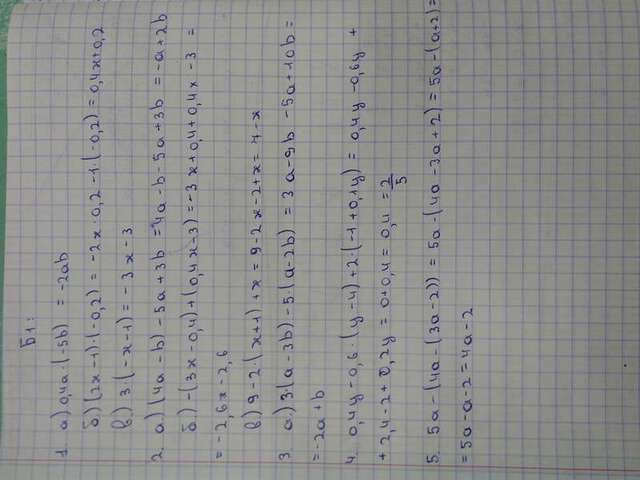 Б1:
1. а) 0,4а·(-5b) = -2ab
б) (2x-1)·(-0,2) = -2x·0,2-1·(-0,2) = 0,4x+0,2
в) 3·(-x-1) = -3x-3
2. а) (4a-b)-5a+3b = 4a-b-5a+3b = -a+2b
б) -(3x-0,4)+(0,4x-3) = -3x+0,4+0,4x-3 =
= -2,6x-2,6
в) 9-2·(x+1)+x = 9-2x-2+x = 7-x
3 а) 3·(a-3b)-5·(a-2b) = 3a-9b-5a+10b =
= -2a+b
4. 0,4y-0,6·(y-4)+2·(-1+0,1y) = 0,4y-0,6y+
+2,4-2+0,2y = 0+0,4 = 0,4 = 2/5
5. 5a-(4a-(3a-2)) = 5a-(4a-3a+2) = 5a-(a+2) =
= 5a-a-2 = 4a-2